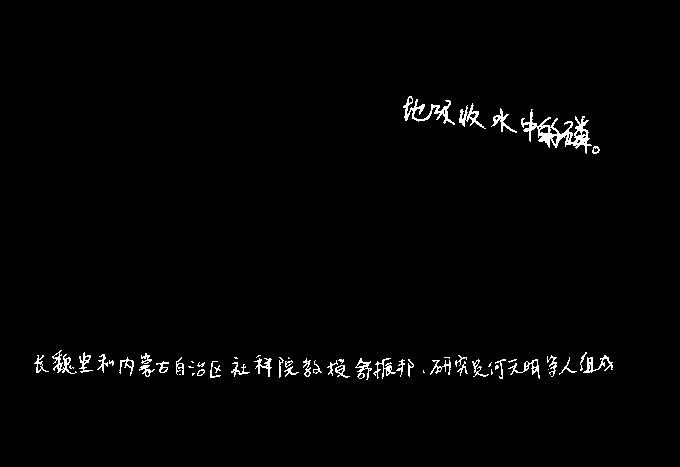 地吸收水中的磷。
长魏坚和内蒙古自治区社科院教授舒振邦、研究员何天明等人组成